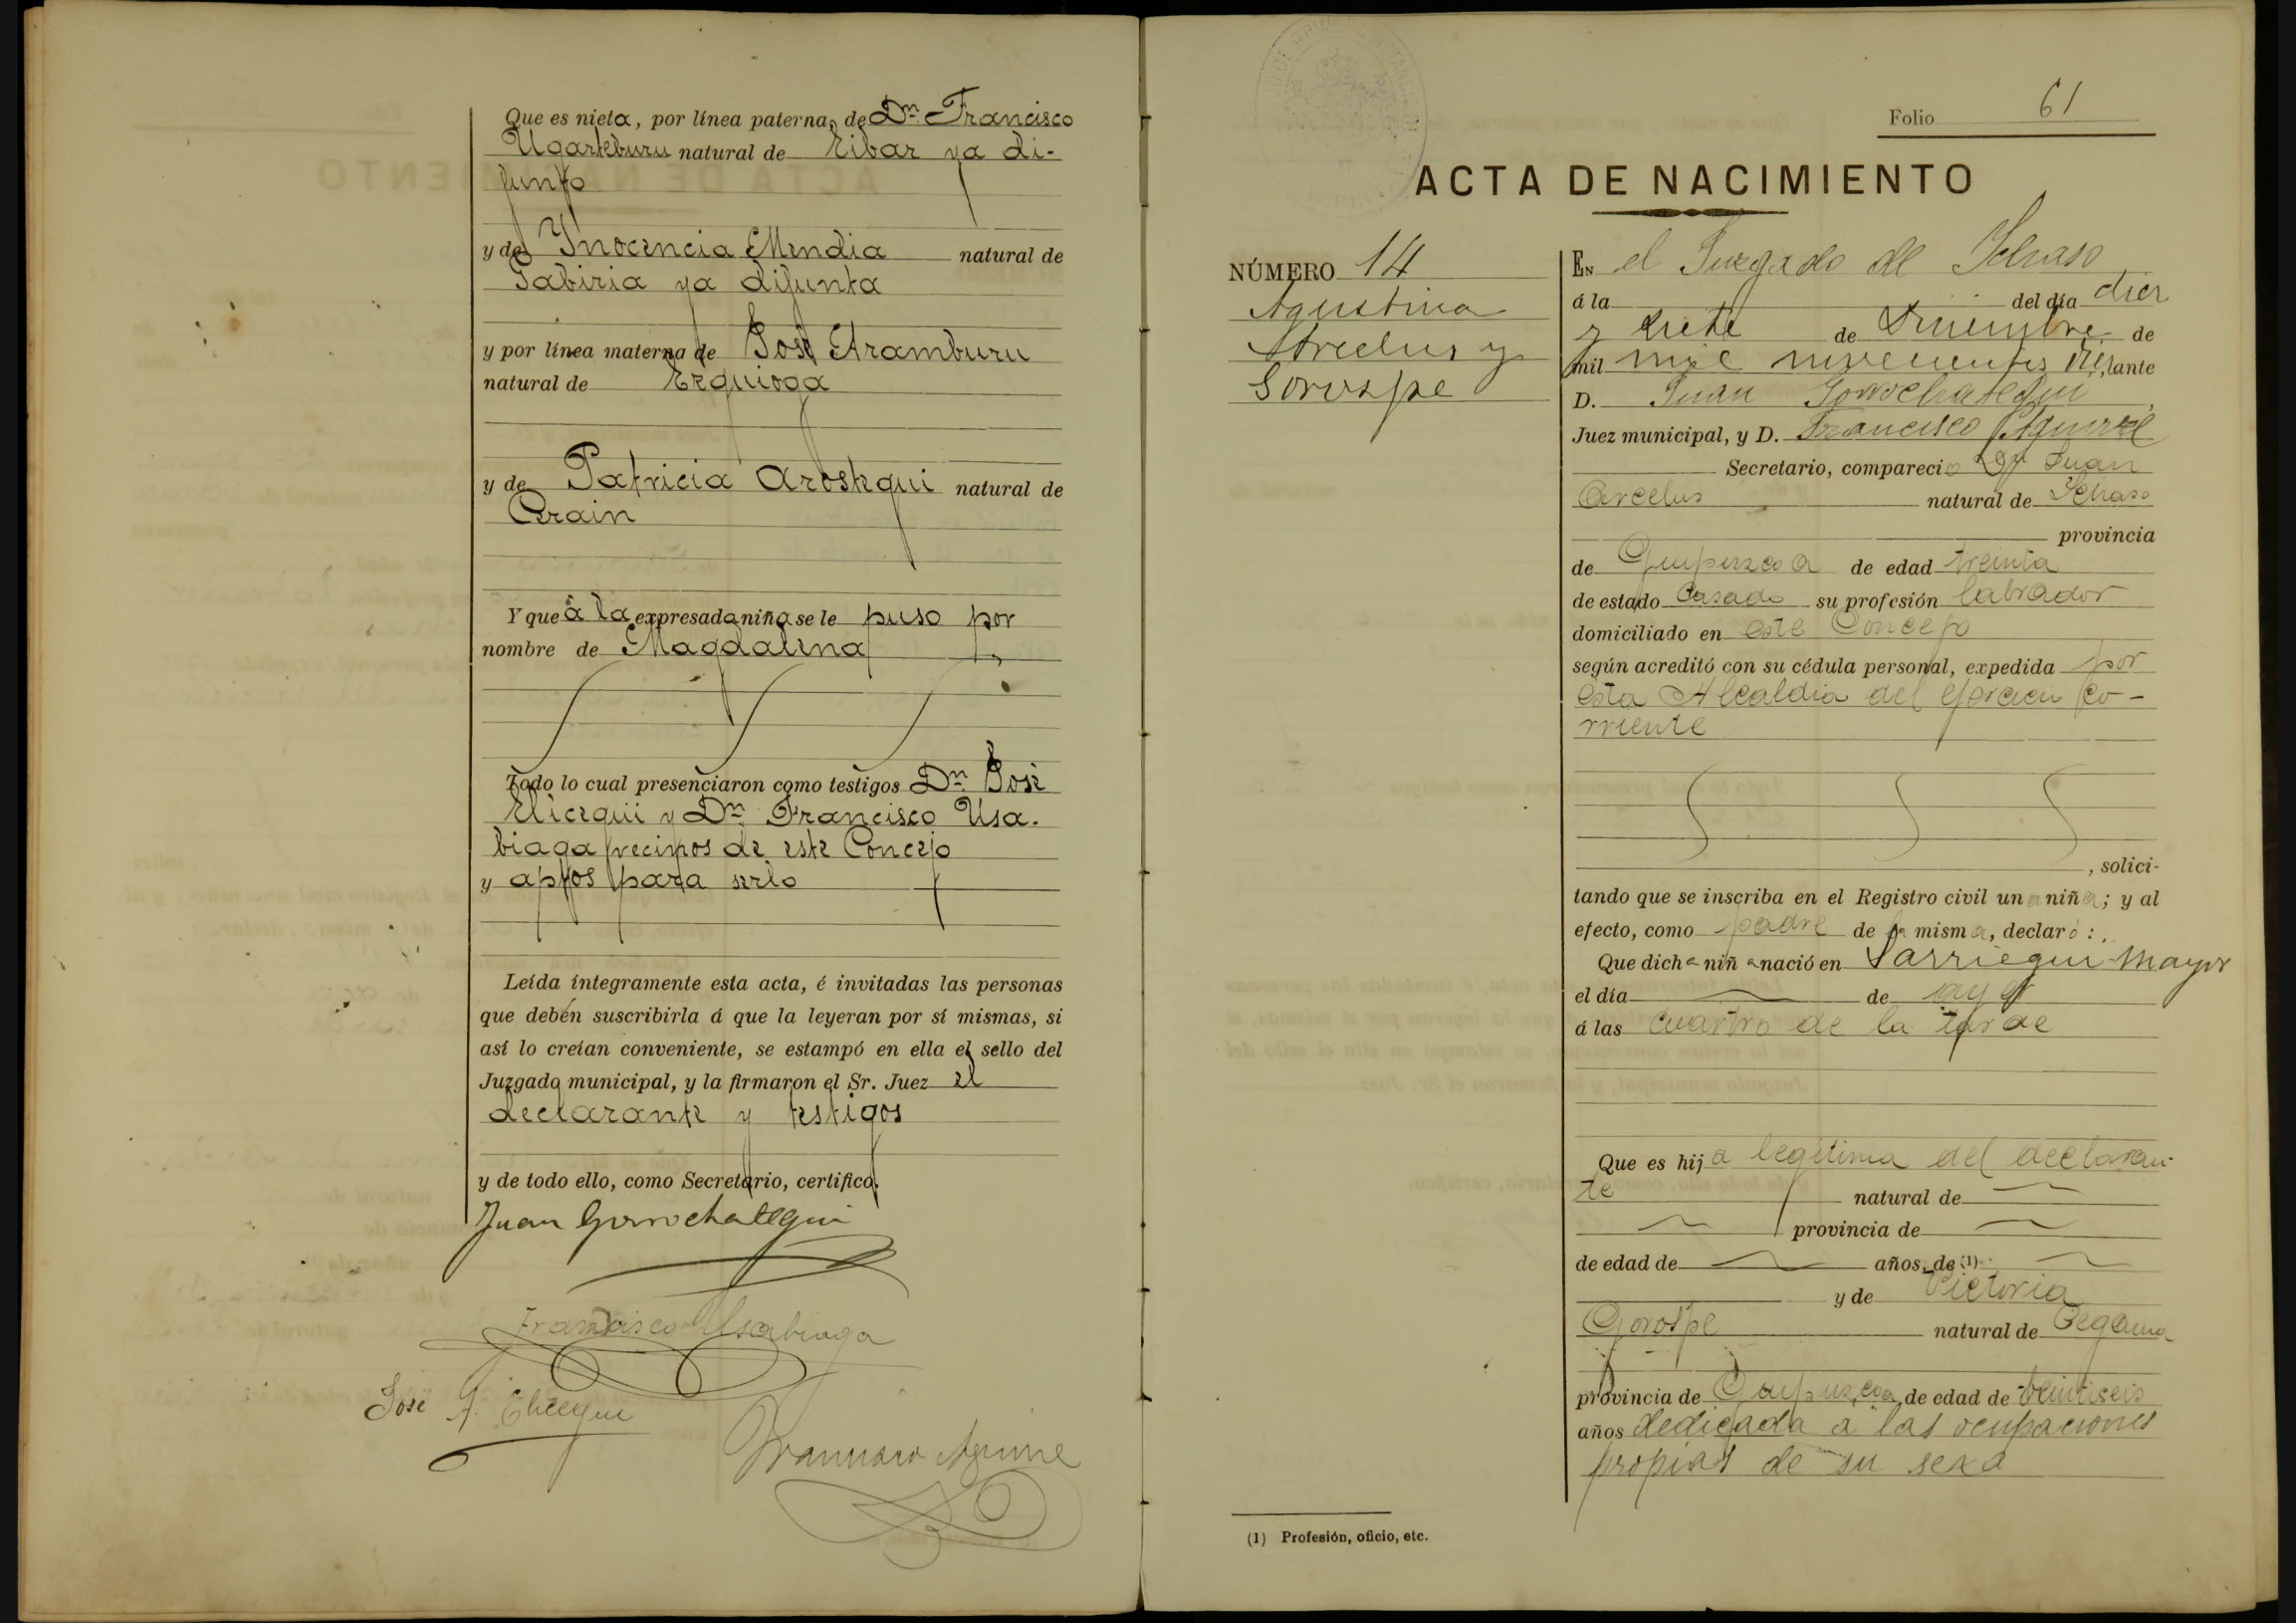 Que es nieta, por línea paterna, de Dn Francisco
Ugarteburu natural de Eibar ya di-
funto
y de Ynocencia Mendia natural de
Gabiria ya difunta
y por línea materna de José Aramburu
natural de Ezquioga
y de Patricia Arostegui natural de
Cerain
Y que á la expresada niña se le puso por
nombre de Magdalena
Todo lo cual presenciaron como testigos Dn José
Elicegui y Dn Francisco Usa-
biaga vecinos de este Concejo
y aptos para serlo
Leída íntegramente esta acta, é invitadas las personas
que debén suscribirla á que la leyeran por sí mismas, si
así lo creían conveniente, se estampó en ella el sello del
Juzgado municipal, y la firmaron el Sr. Juez el
declarante y testigos
y de todo ello, como Secretario, certifico.
Juan Gorrochategui
Francisco Usabiaga
José A. Elicegui
Francisco Aguirre
Folio 61
ACTA DE NACIMIENTO
NÚMERO 14
Agustina
Arcelus y
Gorospe
EN el Juzgado de Ichaso
á la del día diez
y siete de Diciembre de
mil mil novecientos tres, ante
D. Juan Gorrochategui,
Juez municipal, y D. Francisco Aguirre
Secretario, compareció Dn Juan
Arcelus natural de Ichaso
provincia
de Guipuzcoa de edad treinta
de estado Casado su profesión labrador
domiciliado en este Concejo
según acreditó con su cédula personal, expedida por
esta Alcaldia del ejercicio co-
rriente
, solici-
tando que se inscriba en el Registro civil una niña; y al
efecto, como padre de la misma, declaró:
Que dicha niña nació en Sarriegui-Mayor
el día de ayer
á las cuatro de la tarde
Que es hija legitima del declaran-
te natural de
provincia de
de edad de años, de (1)
y de Victoria
Gorospe natural de Cegama
provincia de Guipuzcoa, de edad de veintiseis
años dedicada a las ocupaciones
propias de su sexo
(1) Profesión, oficio, etc.